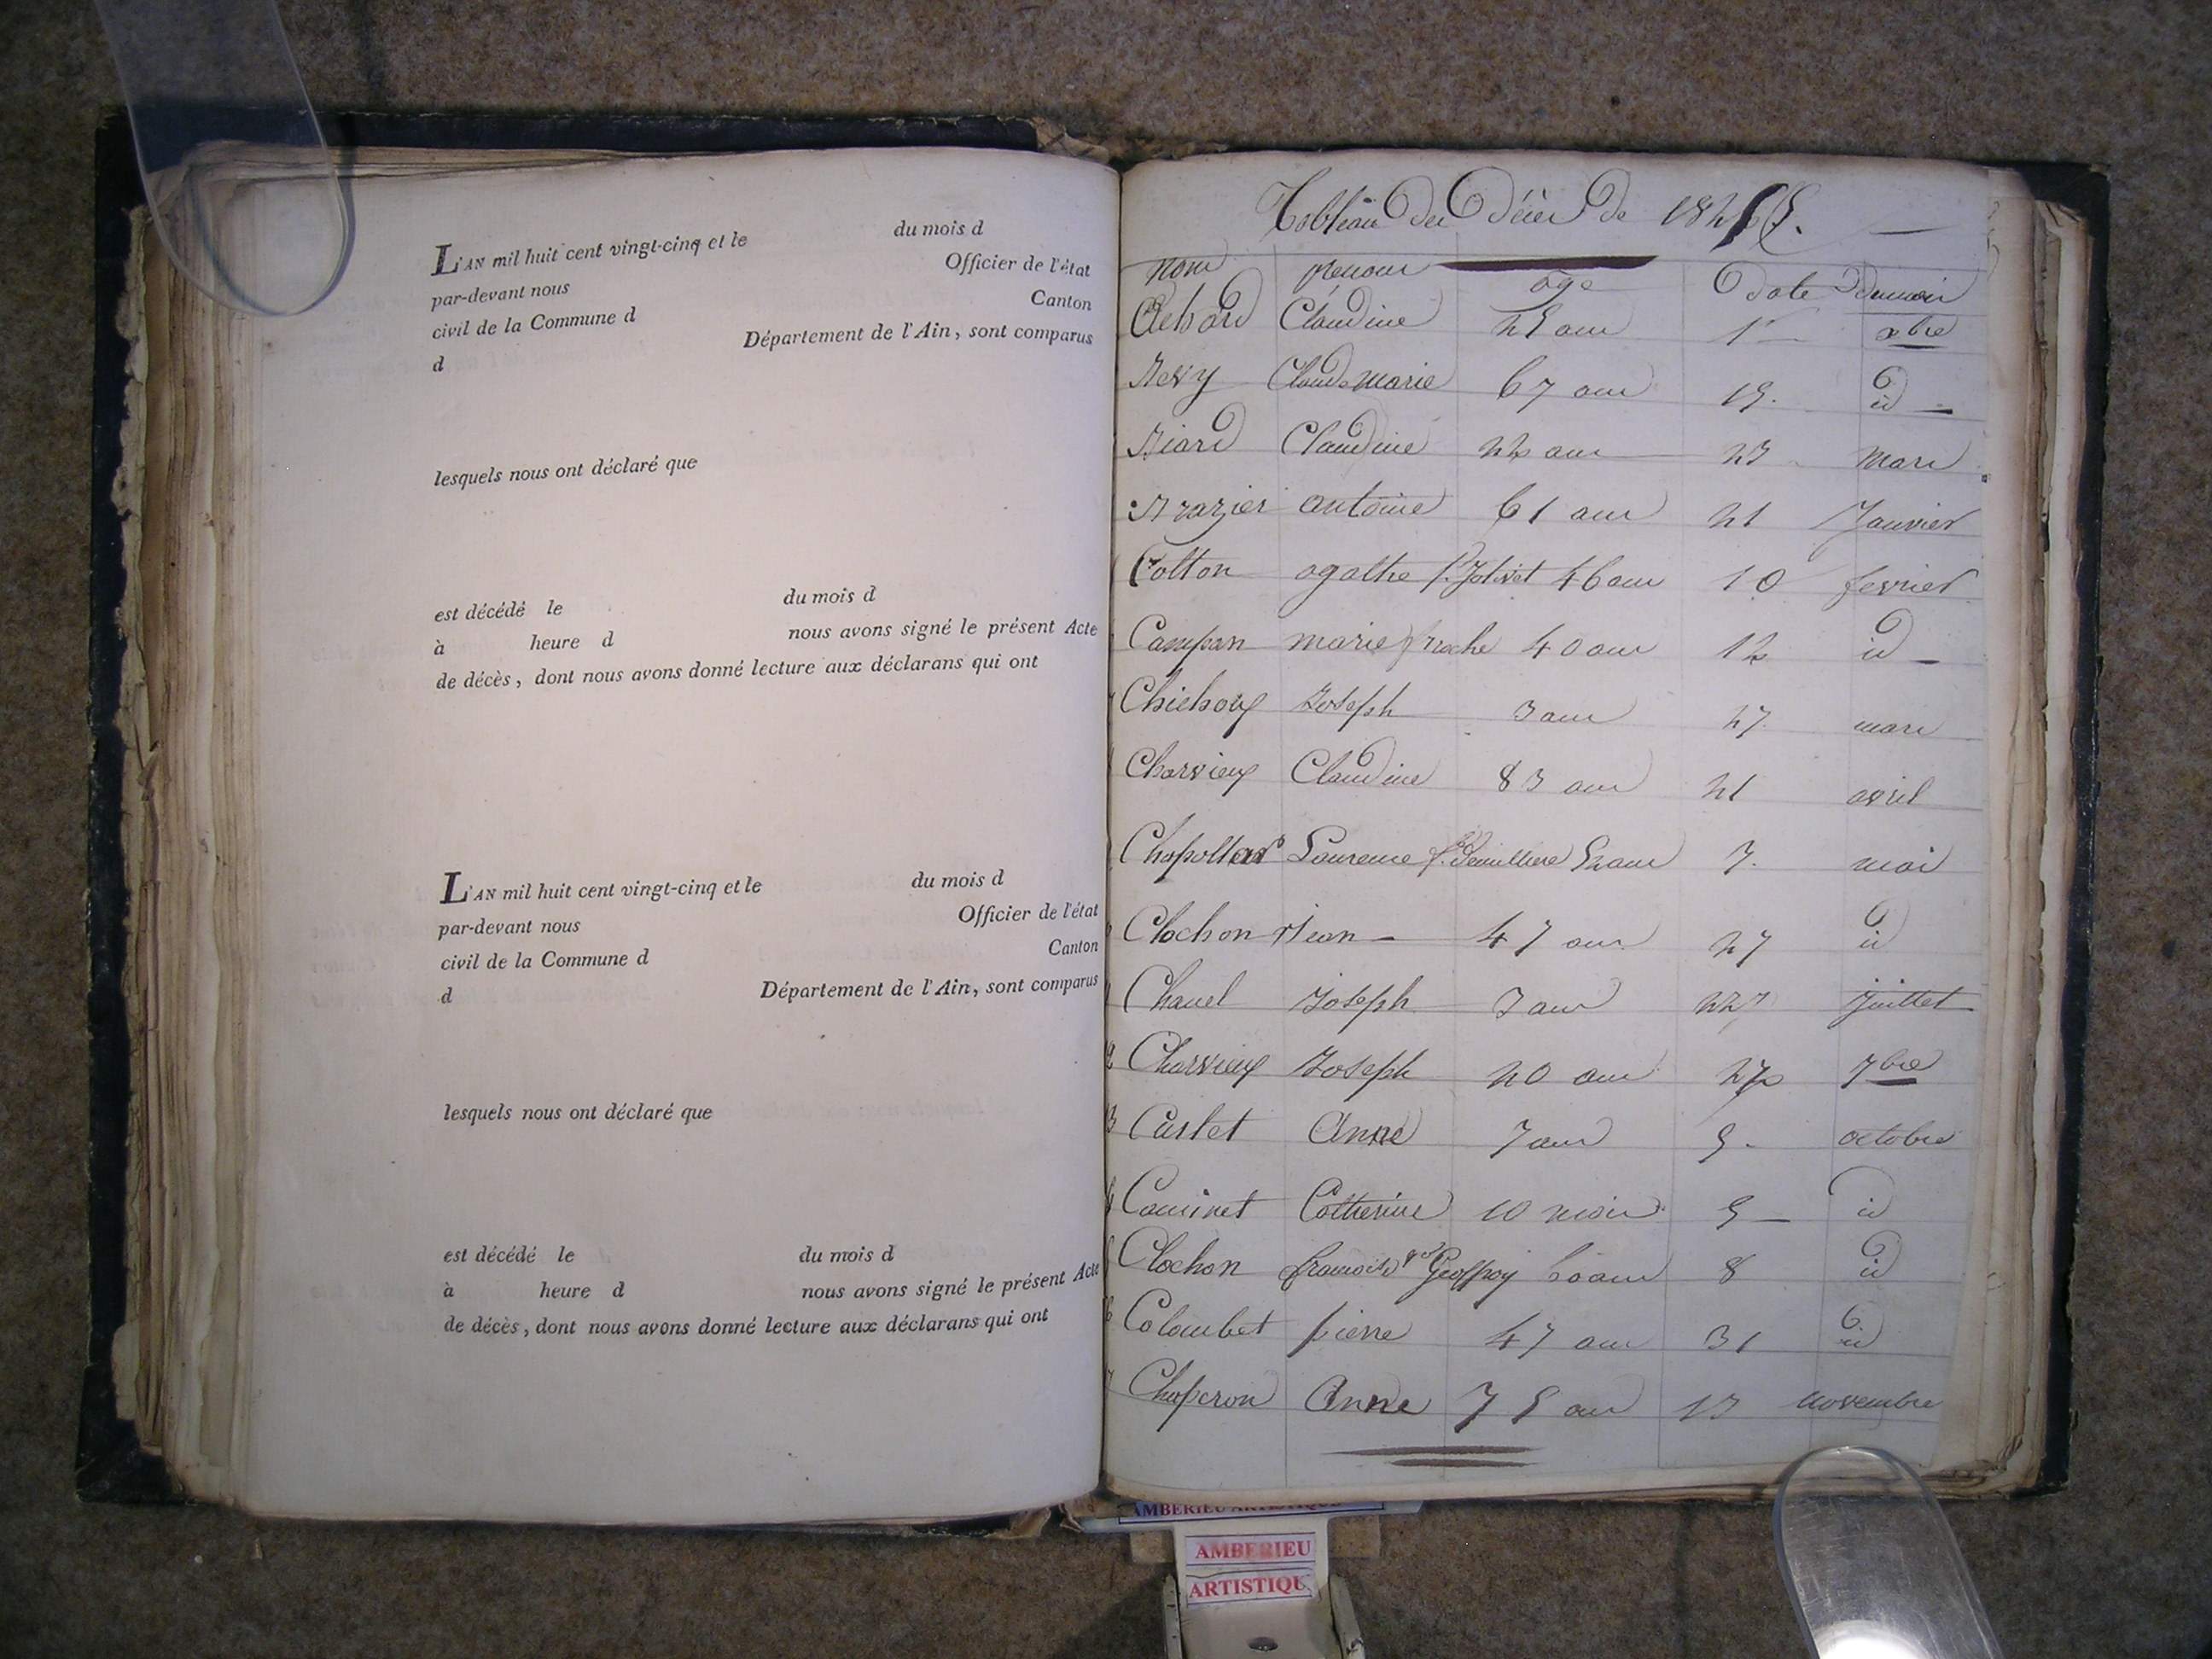 L'AN mil huit cent vingt-cinq et le du mois d
par-devant nous Officier de l'état
civil de la Commune d Canton
d Département de l'Ain, sont comparus
lesquels nous ont déclaré que
est décédé le du mois d
à heure d nous avons signé le présent Acte
de décès, dont nous avons donné lecture aux déclarans qui ont
L'AN mil huit cent vingt-cinq et le du mois d
par-devant nous Officier de l'état
civil de la Commune d Canton
d Département de l'Ain, sont comparus
lesquels nous ont déclaré que
est décédé le du mois d
à heure d nous avons signé le présent Acte
de décès, dont nous avons donné lecture aux déclarans qui ont
Tableau des décès de
nom prenom age date
Claudine 25 ans 1er xbre
Claude marie 67 ans 19. id
Claudine 22 ans 23 mars
antoine 61 ans 21 Janvier
Cotton agathe f. Jolivet 46 ans 10 fevrier
Campan marie 40 ans 12 id
Joseph 3 ans 27 mars
Charvieux Claudine 83 ans 21 avril
Laurence 7. mai
Clochon Jean 47 ans 27 id
Chanel Joseph 3 ans juillet
12 Charvieux Joseph 20 ans 7bre
13 Curtet Anne 7 ans 5 octobre
Caminet Catherine 10 mois 5 id
Clochon Geoffroy 8 id
Colombet pierre 47 ans 31 id
Chaperon Anne 75 ans 13 novembre
AMBERIEU ARTISTIQUE
AMBERIEU
ARTISTIQU